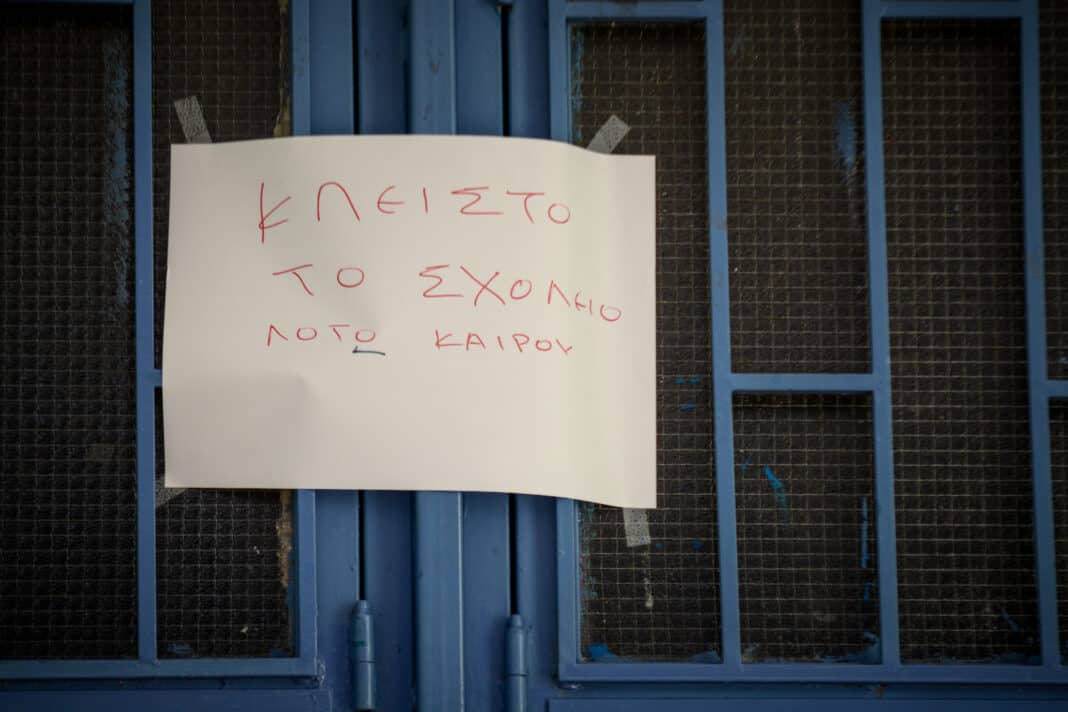 ΚΛΕΙΣΤΟ
ΤΟ ΣΧΟΛΕΙΟ
ΛΟΓΟ ΚΑΙΡΟΥ